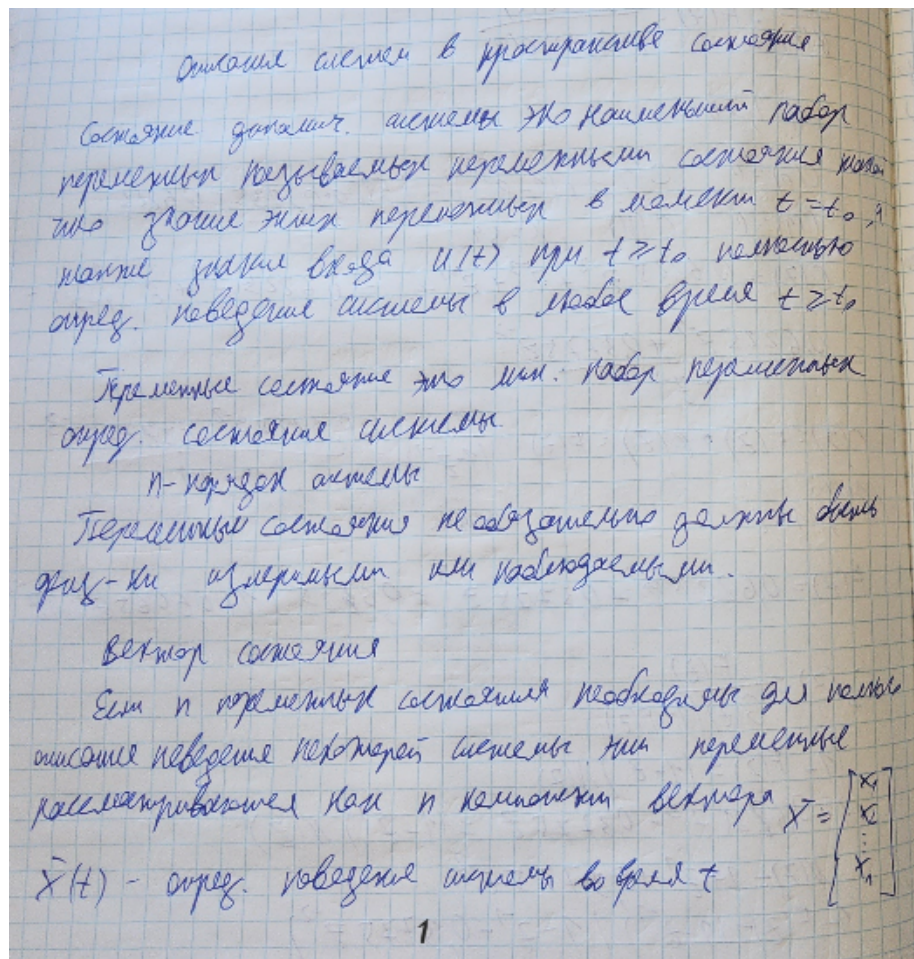 Описания систем в пространстве состояния
Состояние динамич. системы это наименьший набор
переменных называемых переменными состояния такой
что знание этих переменных в момент t = t₀, а
также знания входа u(t) при t ≥ t₀ полностью
опред. поведение системы в любое время t ≥ t₀
Переменные состояние это мин. набор переменных
опред. состояние системы.
n - порядок системы
Переменные состояния не обязательно должны быть
физ-ки измеримыми или наблюдаемыми.
Вектор состояния
Если n переменных состояния необходимы для полного
описание поведения некоторой системы эти переменные
рассматриваются как n компонент вектора X̄ = [x₁ x₂ ... xₙ]
X̄(t) - опред. поведение системы во время t
1